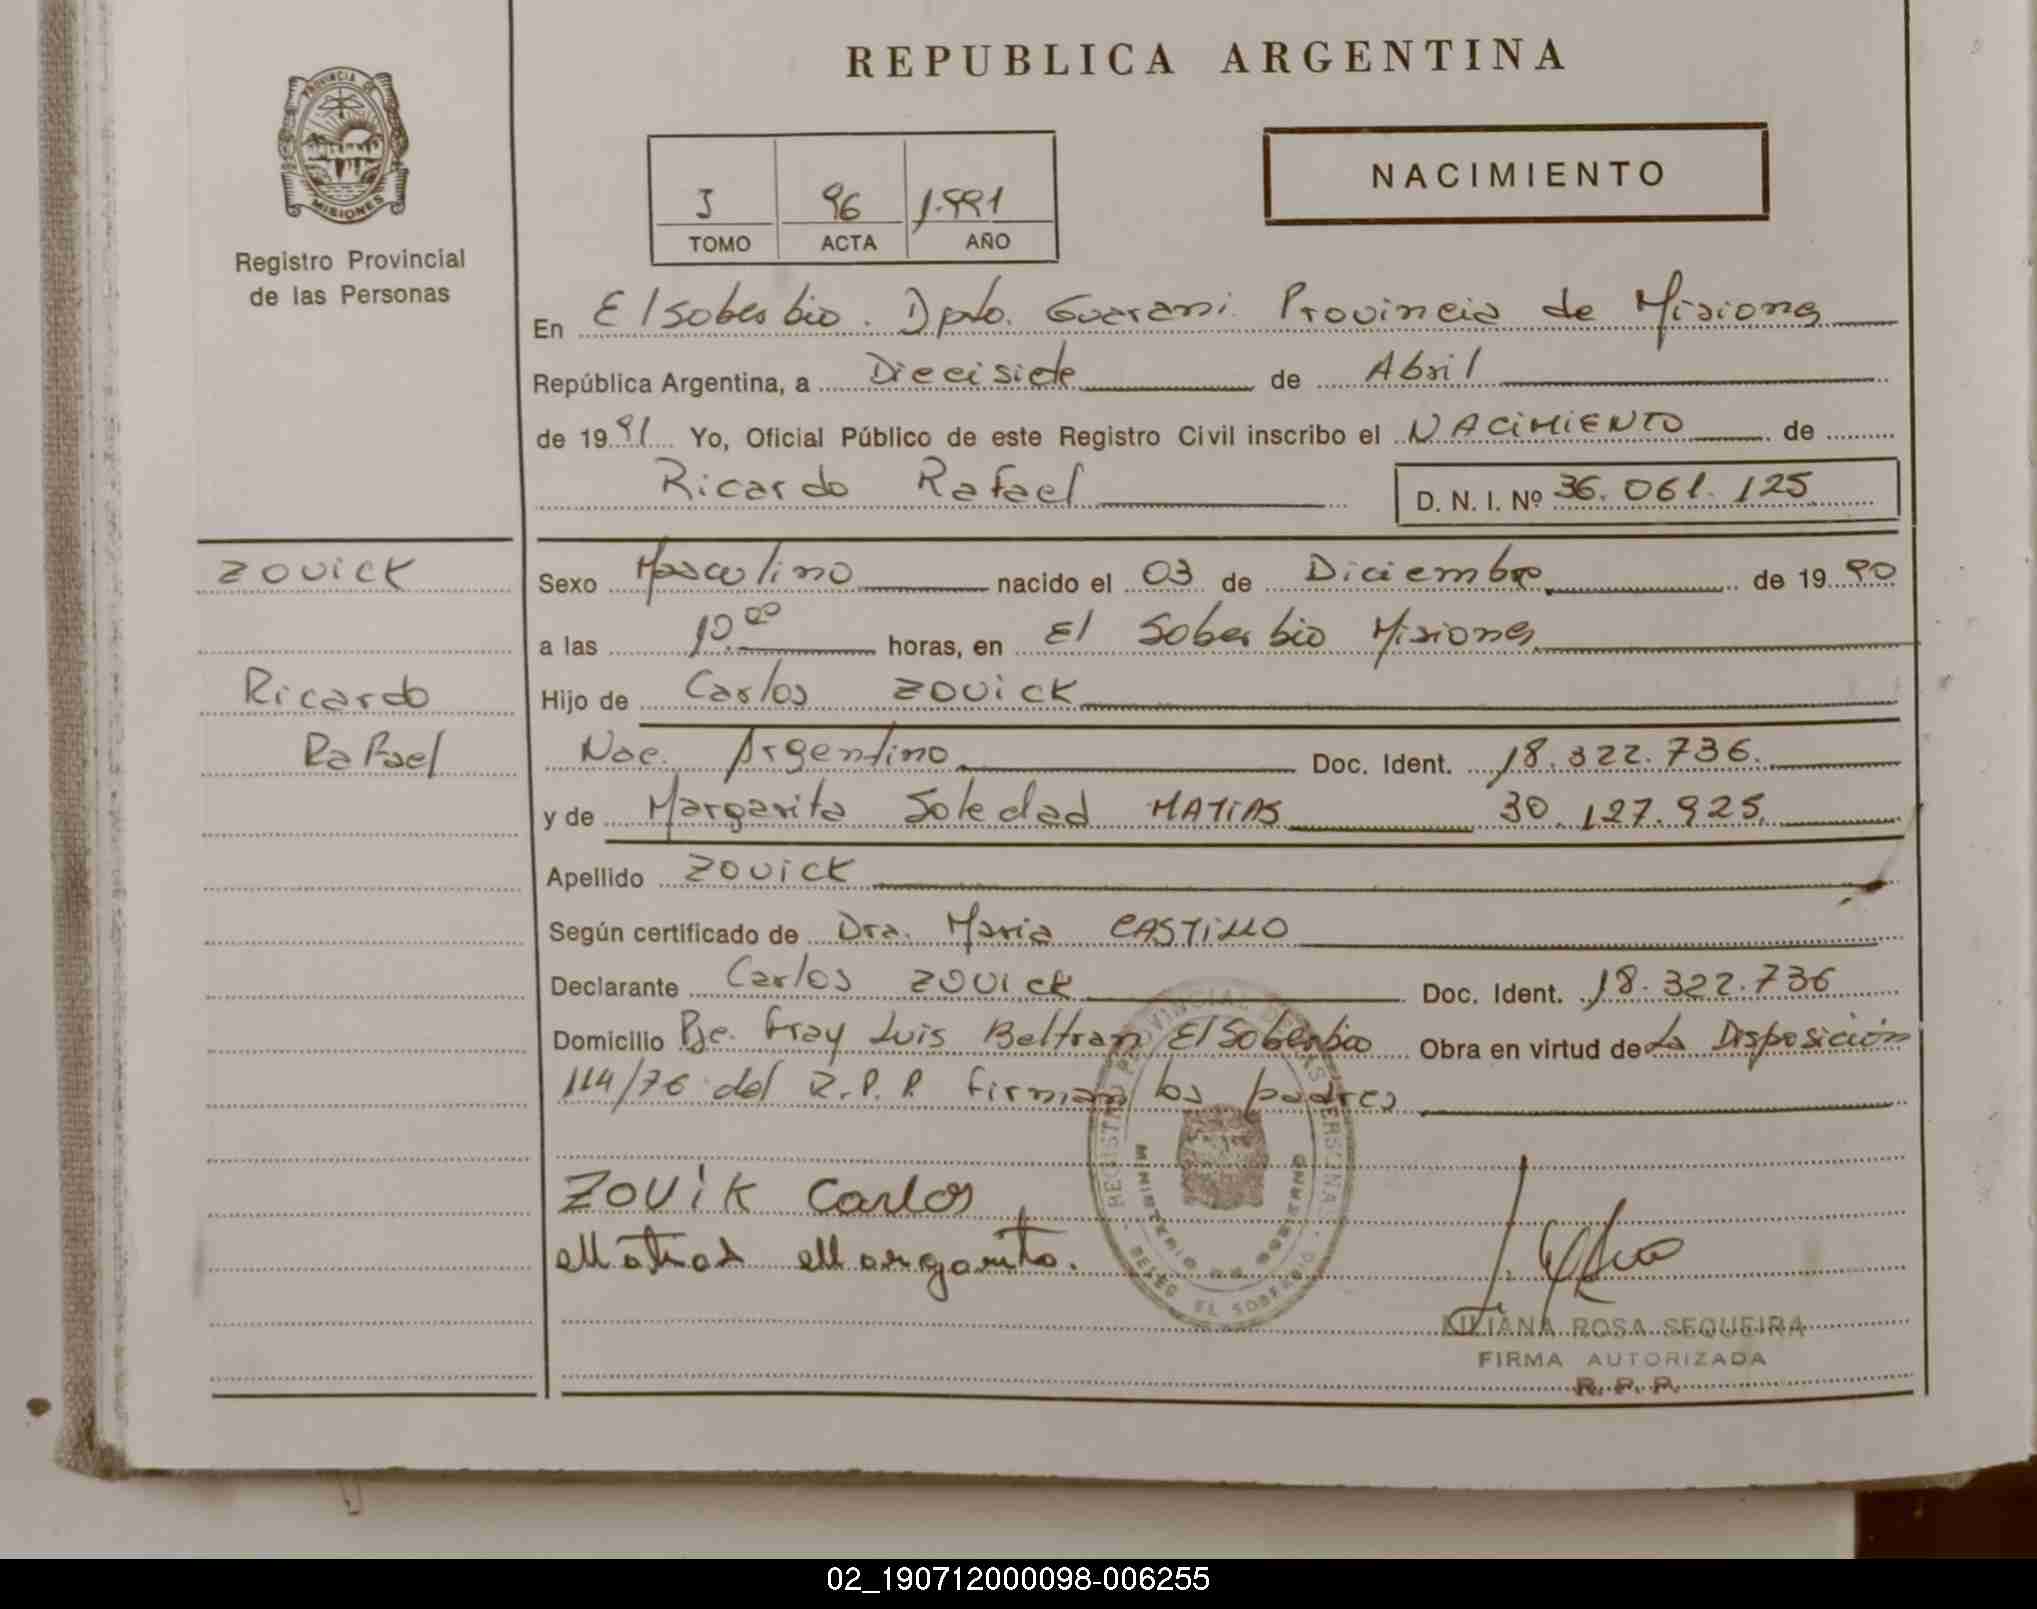 REPUBLICA ARGENTINA
PROVINCIA DE
MISIONES
Registro Provincial
de las Personas
96 1.991
TOMO ACTA AÑO
NACIMIENTO
En El Soberbio. Dpto. Guarani. Provincia de Misiones
República Argentina, a Diecisiete de Abril
de 1991 Yo, Oficial Público de este Registro Civil inscribo el NACIMIENTO de
Ricardo Rafael D. N. I. Nº 36.061.125
ZOVICK
Ricardo
Rafael
Sexo Masculino nacido el 03 de Diciembre de 1990
a las 10.00 horas, en El Soberbio Misiones
Hijo de Carlos ZOVICK
Nac. Argentino Doc. Ident. 18.322.736.
y de Margarita Soledad MATIAS 30.127.925.
Apellido ZOVICK
Según certificado de Dra. Maria CASTILLO
Declarante Carlos ZOVICK Doc. Ident. 18.322.736
Domicilio Pje. Fray Luis Beltran El Soberbio Obra en virtud de La Disposición
114/76 del R.P.P. Firman los padres
ZOVIK Carlos
Matias Margarita.
REGISTRO PROVINCIAL DE LAS PERSONAS
MINISTERIO DE GOBIERNO
DELEG EL SOBERBIO
LILIANA ROSA SEQUEIRA
FIRMA AUTORIZADA
R. P. P.
02_190712000098-006255